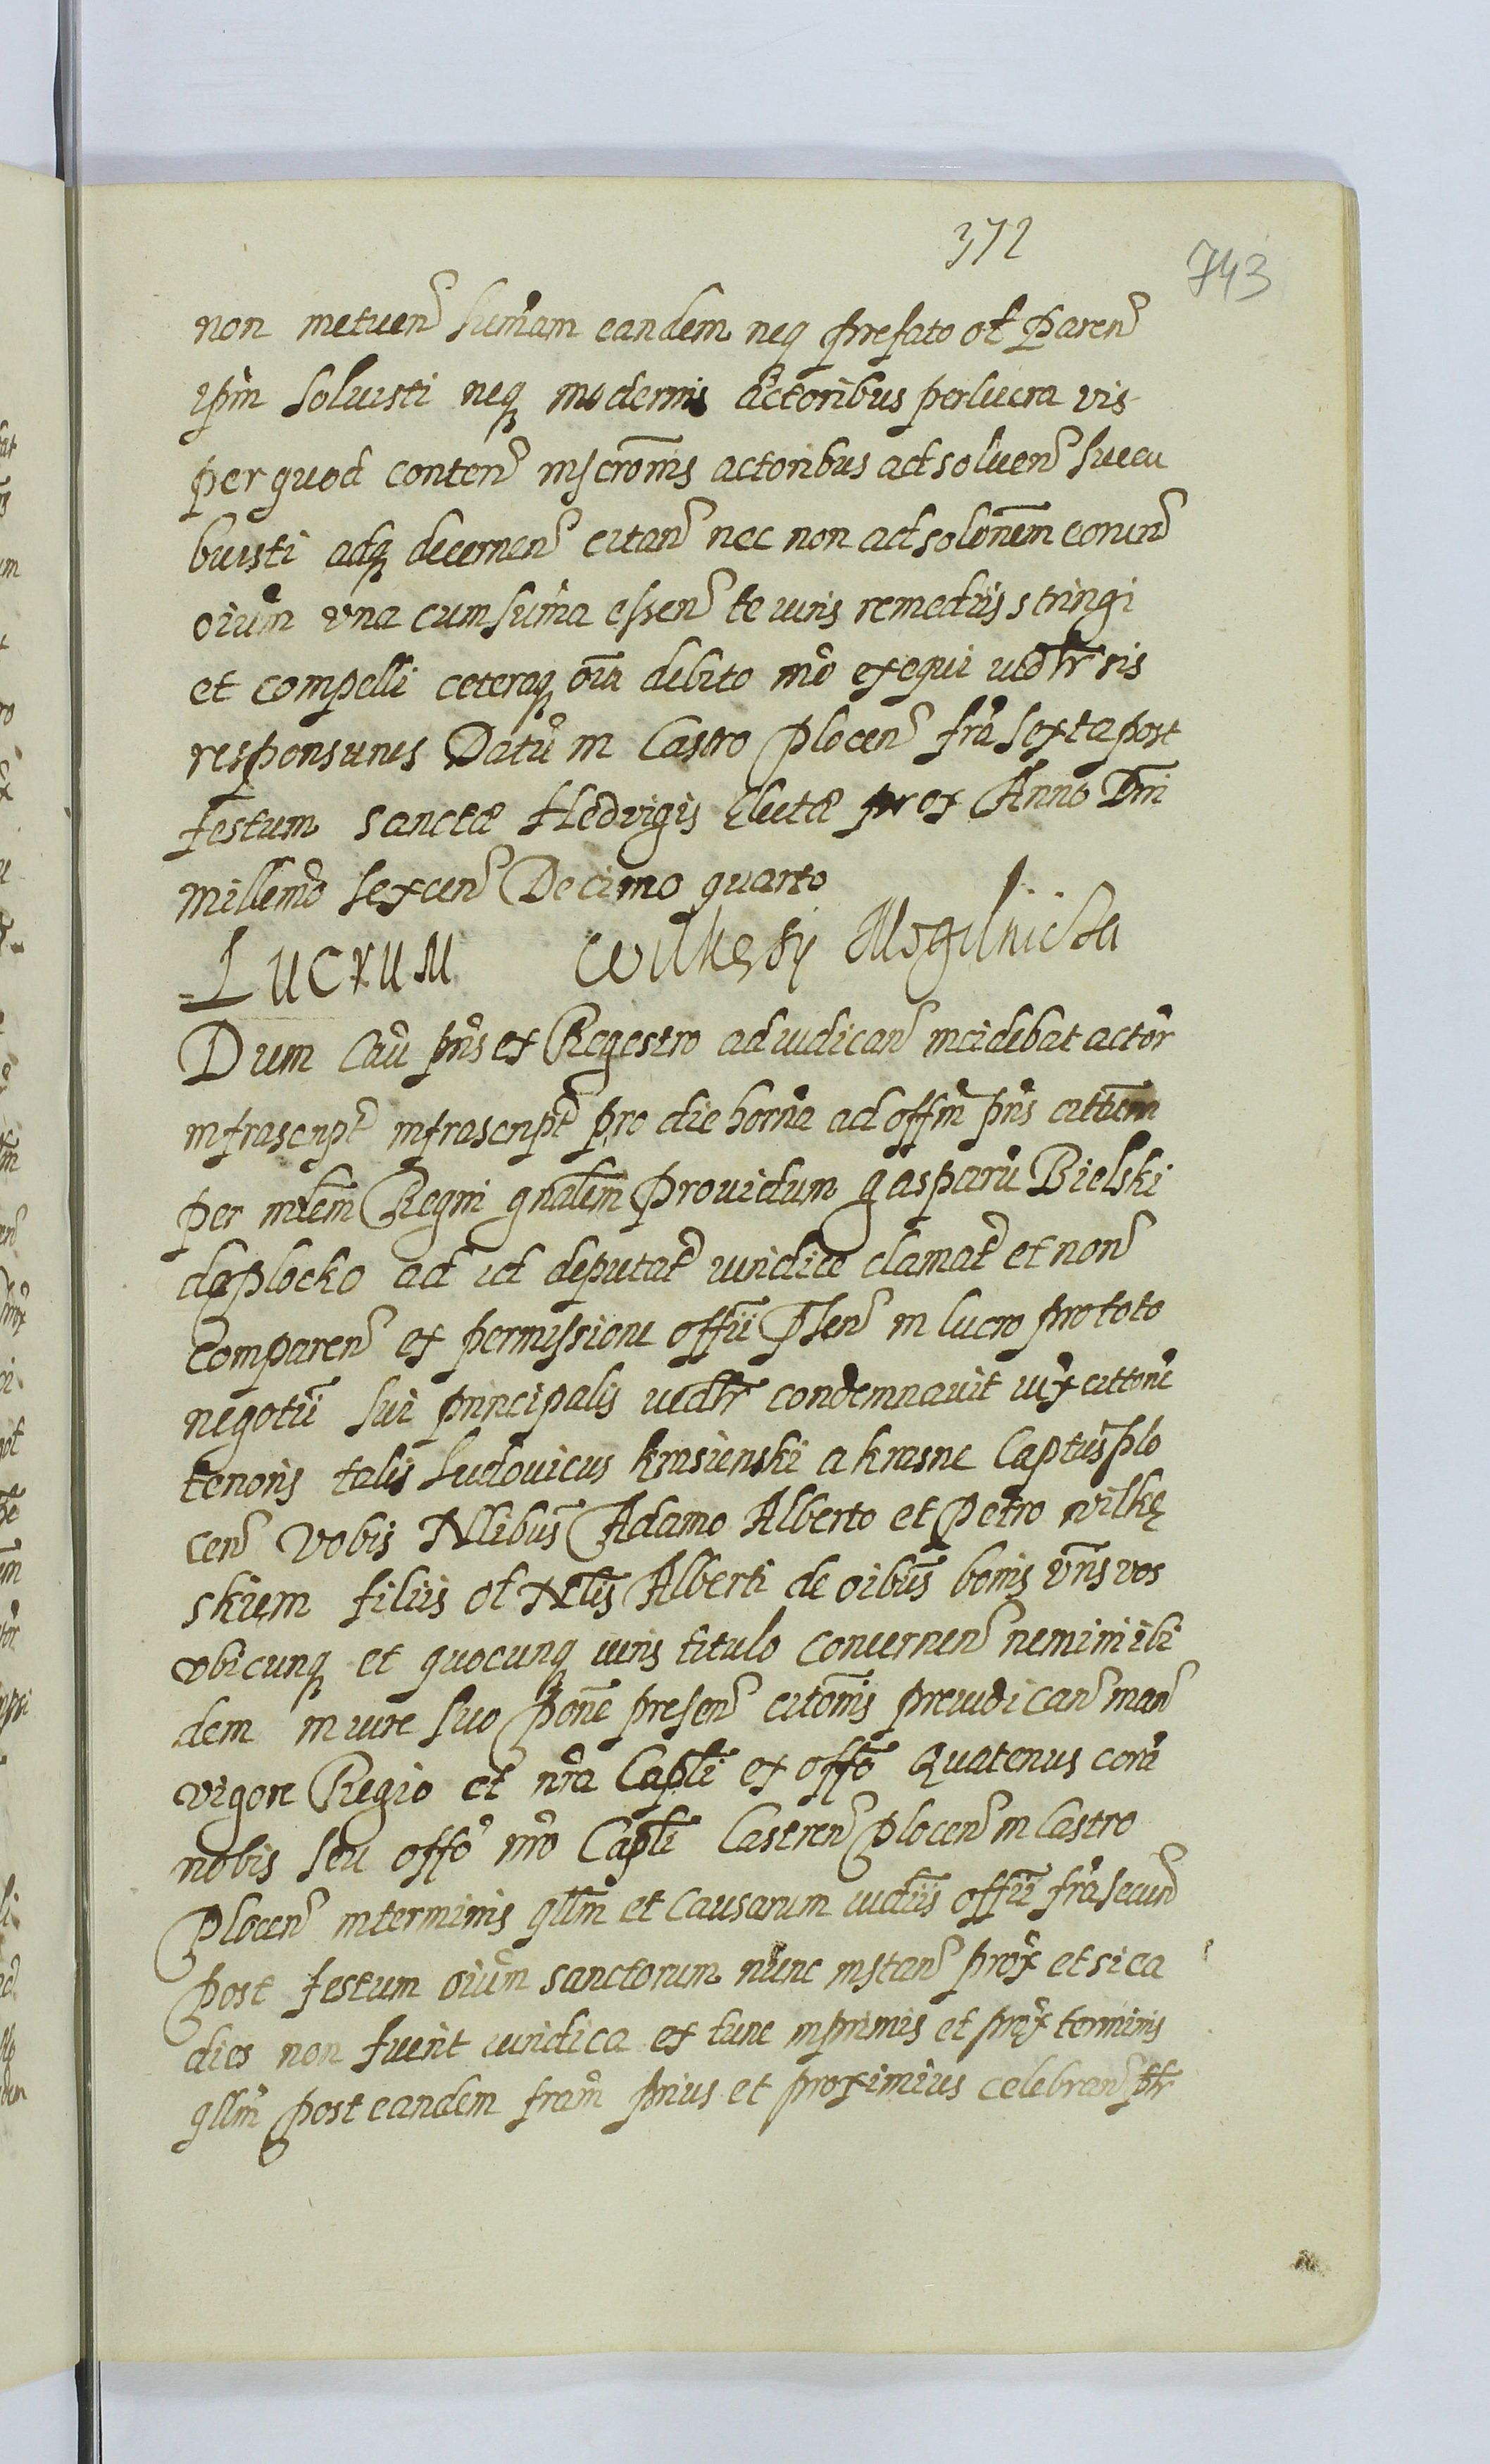 372
743
non metuen̄ sum̄am eandem neq prefato ol Paren̄
ipm̄ soluisti neq modernis actoribus perlucra vis
per quod conten̄ inscrōnis actoribus ad soluen̄ sucu
buisti adq decernen̄ citan̄ nec non ad solōnem eorun̄
oium̄ vna cum sum̄a essen̄ te iuris remediis stringi
et compelli ceteraq oīa debito mō exequi uidlr̄ sis
responsurus Datū in Castro Plocen̄ frā sexta post
festum sanctæ Hedvigis Electæ prox Anno Dnī
millemō sexcen̄ Decimo quarto
Lucrum Wilkęsky Mogilnicka
Dum Caū pn̄s ex Regestro ad iudican̄ incidebat actor
infrascript̄ infrascript̄ pro die horna ad offm̄ pn̄s citatum
per mlem̄ Regni gnalem̄ Prouidum gasparū Bielski
de plocko ad id deputat̄ iuridice clamat̄ et non̄
comparen̄ ex permissione offii Psen̄ in lucro pro toto
negotii sui principalis uidlr̄ condemnauit iux cittōne
tenoris talis Ludouicus krasienski a krasne Captus plo
cen̄ vobis Nllibus Adamo Alberto et Petro wilkę
skiem filiis ol Nlis Alberti de oibus bonis vrīs vos
vbicunq et quocunq iuris titulo concernen̄ nemini ibi
dem in iure suo Pōne presen̄ citōnis preiudican̄ man̄
vigore Regio et nrā Capli ex offō Quatenus corā
nobis seu offō nrō Capli Castren̄ Plocen̄ in Castro
Plocen̄ in terminis qllm̄ et Causarum iudiis offii frā secun̄
post festum oium̄ sanctorum nunc instan̄ prox et si ea
dies non fuerit iuridica ex tunc inprimis et prox terminis
qllm̄ post eandem fram̄ prius et proximius celebran̄ ptr̄